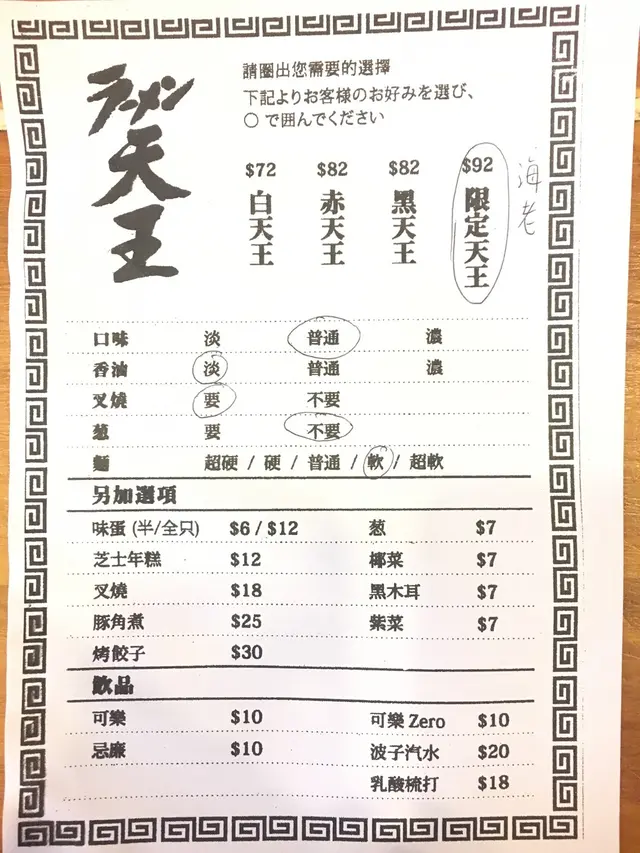 ラーメン
天王
請圈出您需要的選擇
下記よりお客様のお好みを選び、
○で囲んでください
$72 白天王
$82 赤天王
$82 黑天王
$92 限定天王
海老
口味 淡 普通 濃
香油 淡 普通 濃
叉燒 要 不要
葱 要 不要
麵 超硬 / 硬 / 普通 / 軟 / 超軟
另加選項
味蛋 (半/全只) $6 / $12 葱 $7
芝士年糕 $12 椰菜 $7
叉燒 $18 黑木耳 $7
豚角煮 $25 紫菜 $7
烤餃子 $30
飲品
可樂 $10 可樂 Zero $10
忌廉 $10 波子汽水 $20
乳酸梳打 $18